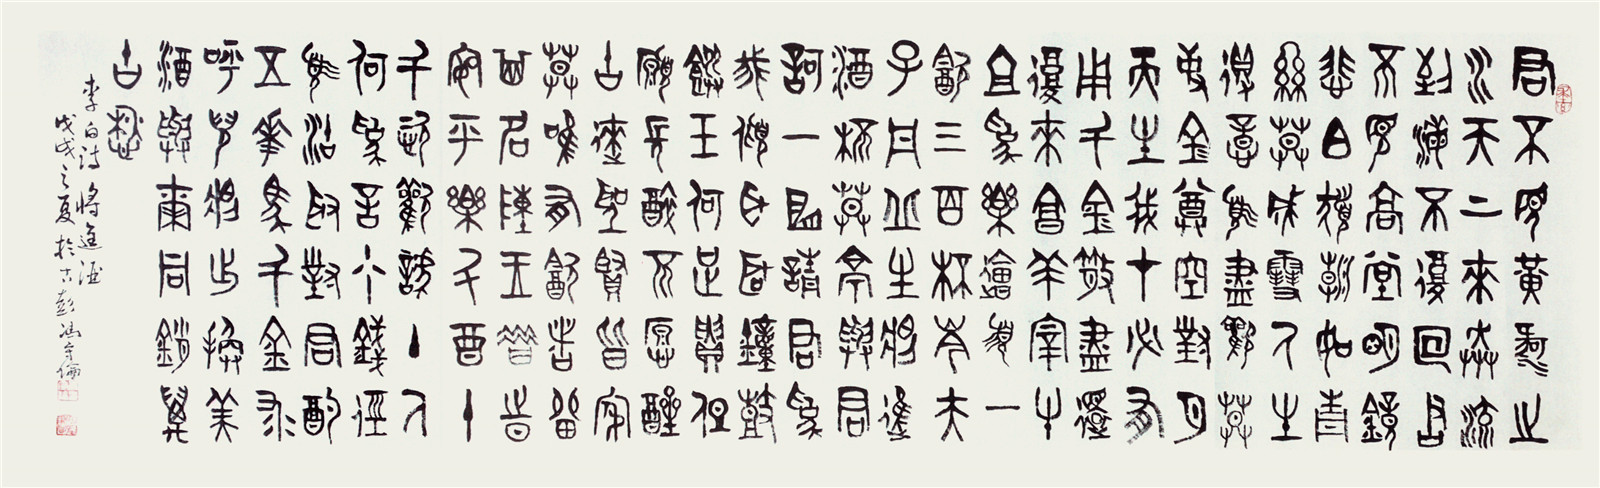 君不見黃河之
水天上來奔流
到海不復回君
不見高堂明鏡
悲白髮朝如青
絲莫成雪人生
得意須盡歡莫
使金尊空對月
天生我才必有
用千金散盡還
復來烹羊宰牛
且為樂會須一
飲三百杯岑夫
子丹丘生將進
酒杯莫停與君
歌一曲請君為
我傾耳聽鐘鼓
饌玉何足貴但
願長醉不願醒
古來聖賢皆寂
莫唯有飲者留
其名陳王昔時
宴平樂斗酒十
千恣歡謔主人
何為言少錢徑
須沽取對君酌
五花馬千金裘
呼兒將出換美
酒與爾同銷萬
古愁
李白詩將進酒
戊戌之夏於古彭馮倫